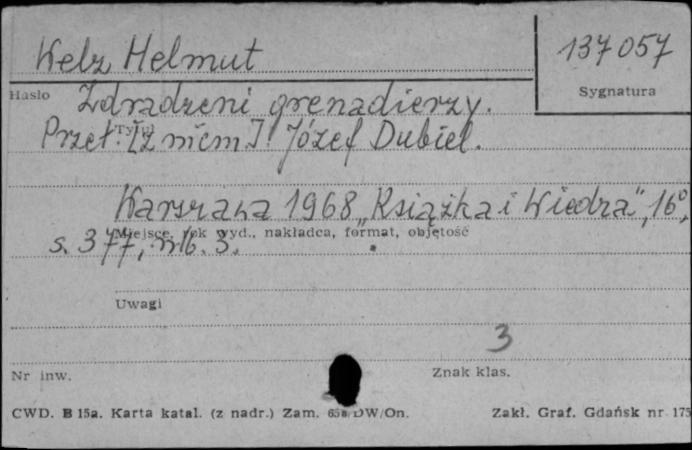 Welz Helmut
137057
Hasło
Sygnatura
Zdradzeni grenadierzy.
Tytuł
Przeł. [z niem.]: Józef Dubiel.
Warszawa 1968 „Książka i Wiedza", 16°,
Miejsce, rok wyd., nakładca, format, objętość
s. 377, nlb. 3.
Uwagi
3
Nr inw.
Znak klas.
CWD. B 15a. Karta katal. (z nadr.) Zam. DW/On.
Zakł. Graf. Gdańsk nr 175